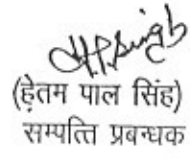 H.P.Singh
(हेतम पाल सिंह)
सम्पत्ति प्रबन्धक